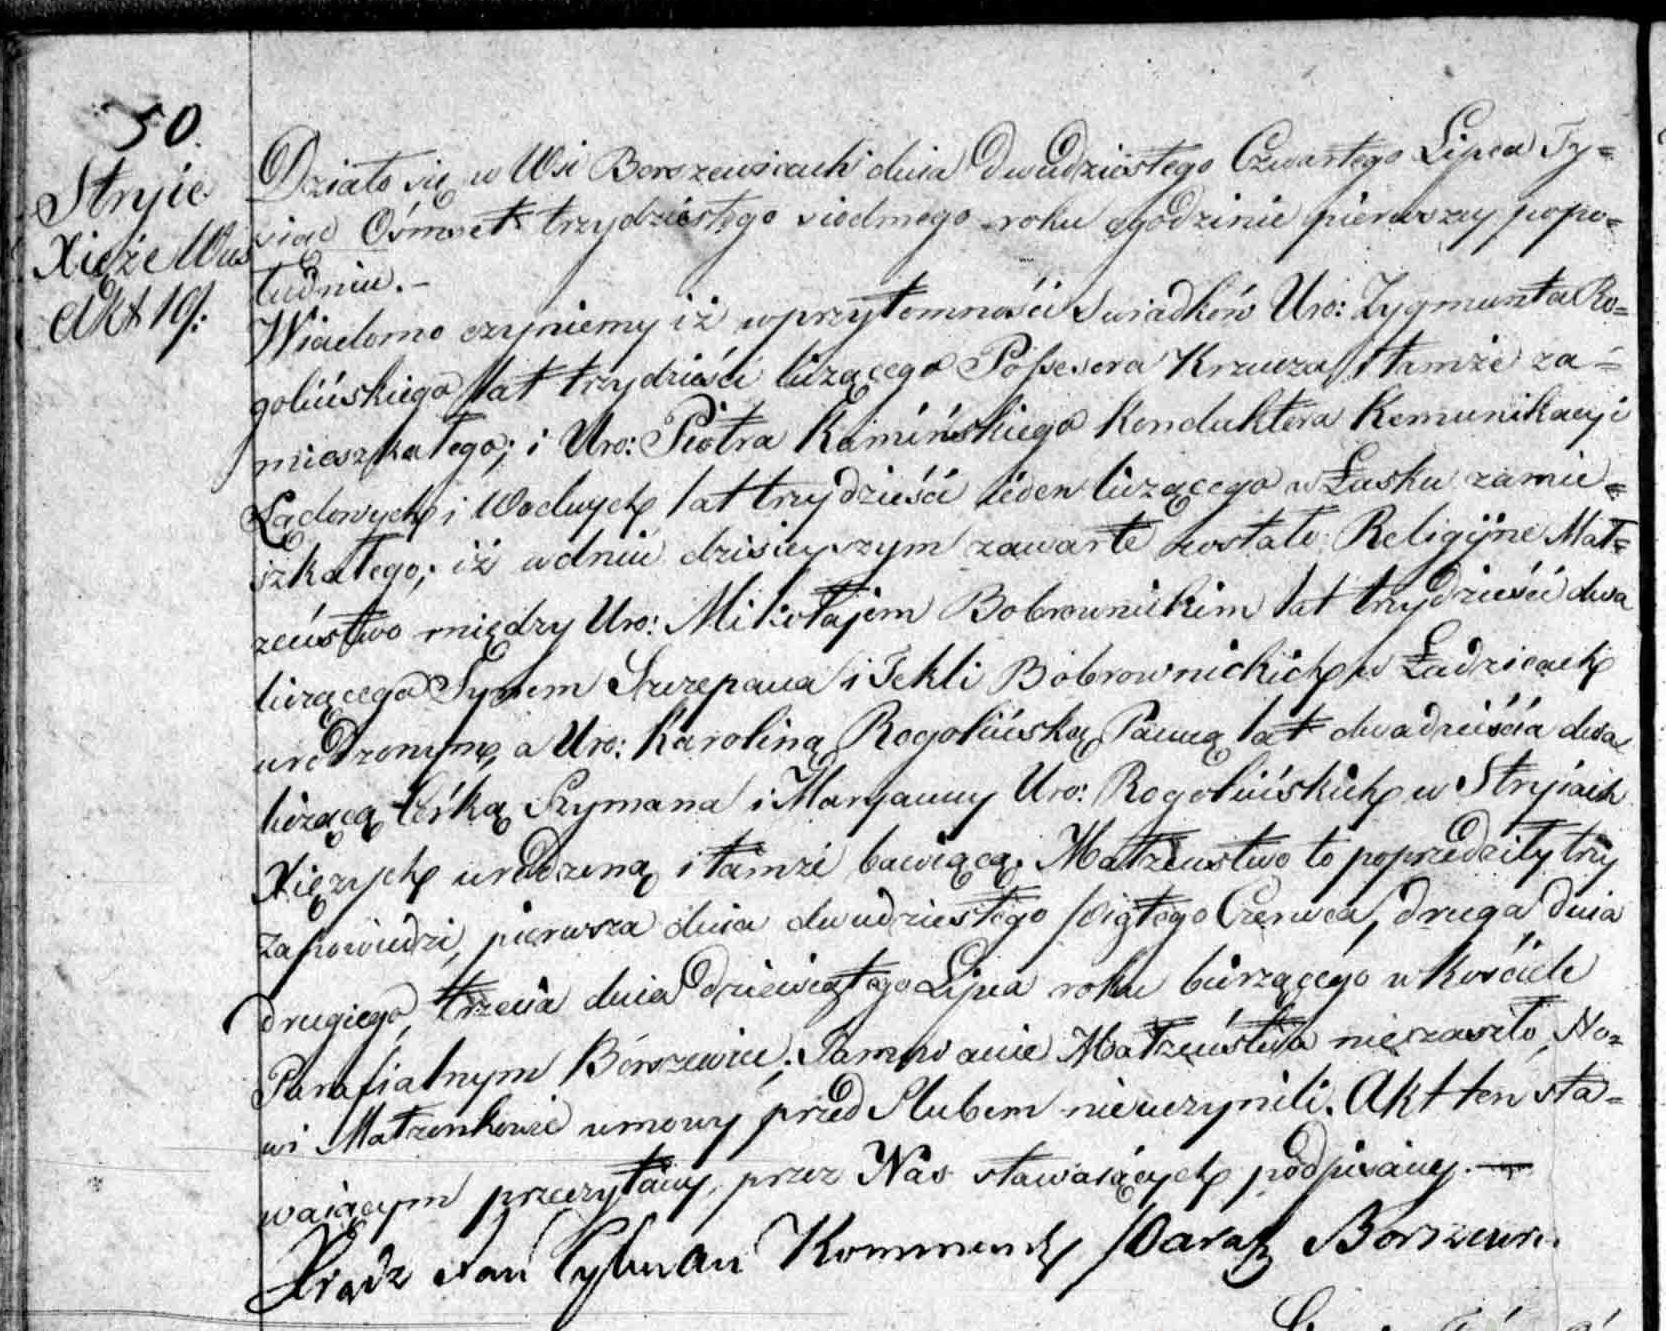 50.
Stryie
Xięże Wieś
Akt 19.
Działo się w Wsi Borszewicach dnia Dwudziestego Czwartego Lipca Ty=
siąc Ośmset trzydziestego siodmego roku ogodzinie pierwszey popo=
łudniu.-
Wiadomo czyniemy iż w przytomności Swiadków Uro: Zygmunta Ro=
golińskiego lat trzydzieści liczącego Possesora Krzucza, i tamże za=
mieszkałego; i Uro: Piotra Kamińskiego Konduktora Komunikacyi
Lądowych i Wodnych lat trzydzieści ieden liczącego w Łasku zamie=
szkałego; iż w dniu dzisieyszym zawarte zostało Religijne Mał=
żeństwo między Uro: Mikołajem Bobrownickim lat trzydzieści dwa
liczącego Synem Szczepana i Tekli Bobrownickich w Ładzicach
urodzonym, a Uro: Karoliną Rogolińską Panną lat dwadzieścia dwa
liczącą Córką Szymana i Maryanny Uro: Rogolińskich w Stryiach
Xięzych urodzoną i tamże bawiącą. Małżeństwo to poprzedziły trzy
Zapowiedzi, pierwsza dnia dwudziestego piątego Czerwca, druga dnia
drugiego, trzecia dnia dziewiątego Lipca roku bieżącego w Kościele
Parafialnym Borszewice; Tamowanie Małżeństwa niezaszło, No=
wi Małżonkowie umowy przed Slubem nieuczynili. Akt ten sta=
waiącym przeczytany, przez Nas stawaiących podpisany.—
Xiądz Jan Kommend Paraf Borszewic.